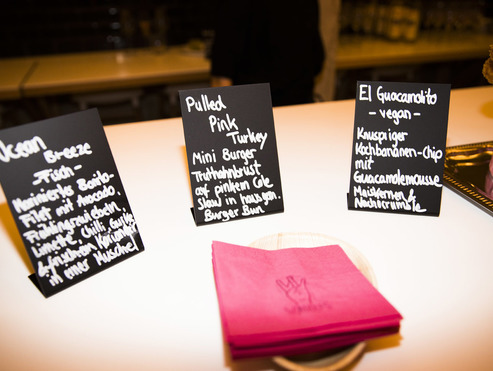 Ocean
Breeze
-Fisch-
Marinierter Bonito-
Filet mit Avocado,
Frühlingszwiebeln,
Limette, Chilli, Gurke
& frischem Koriander
in einer Muschel
Pulled
Pink
Turkey
Mini Burger
Truthahnbrust
auf pinkem Cole
Slaw in hausgem.
Burger Bun
El Guacamolito
- vegan -
Knuspriger
Kochbananen-Chip
mit
Guacamolemousse
Maiskernen &